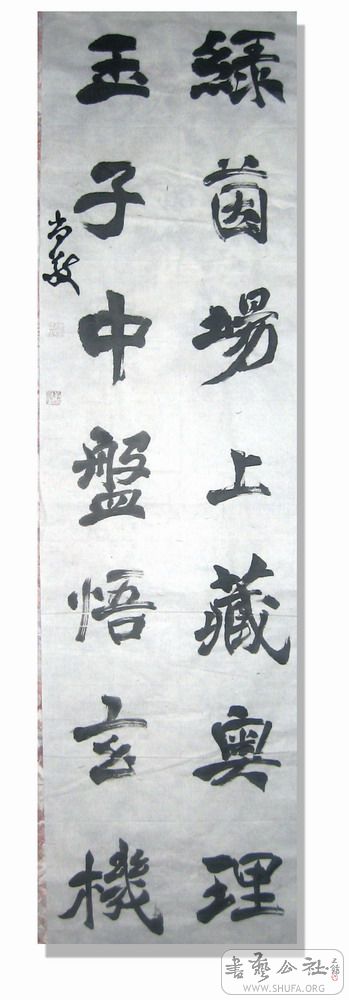 綠茵場上藏奧理
玉子中盤悟玄機
尚毅
書藝公社
WWW.SHUFA.ORG